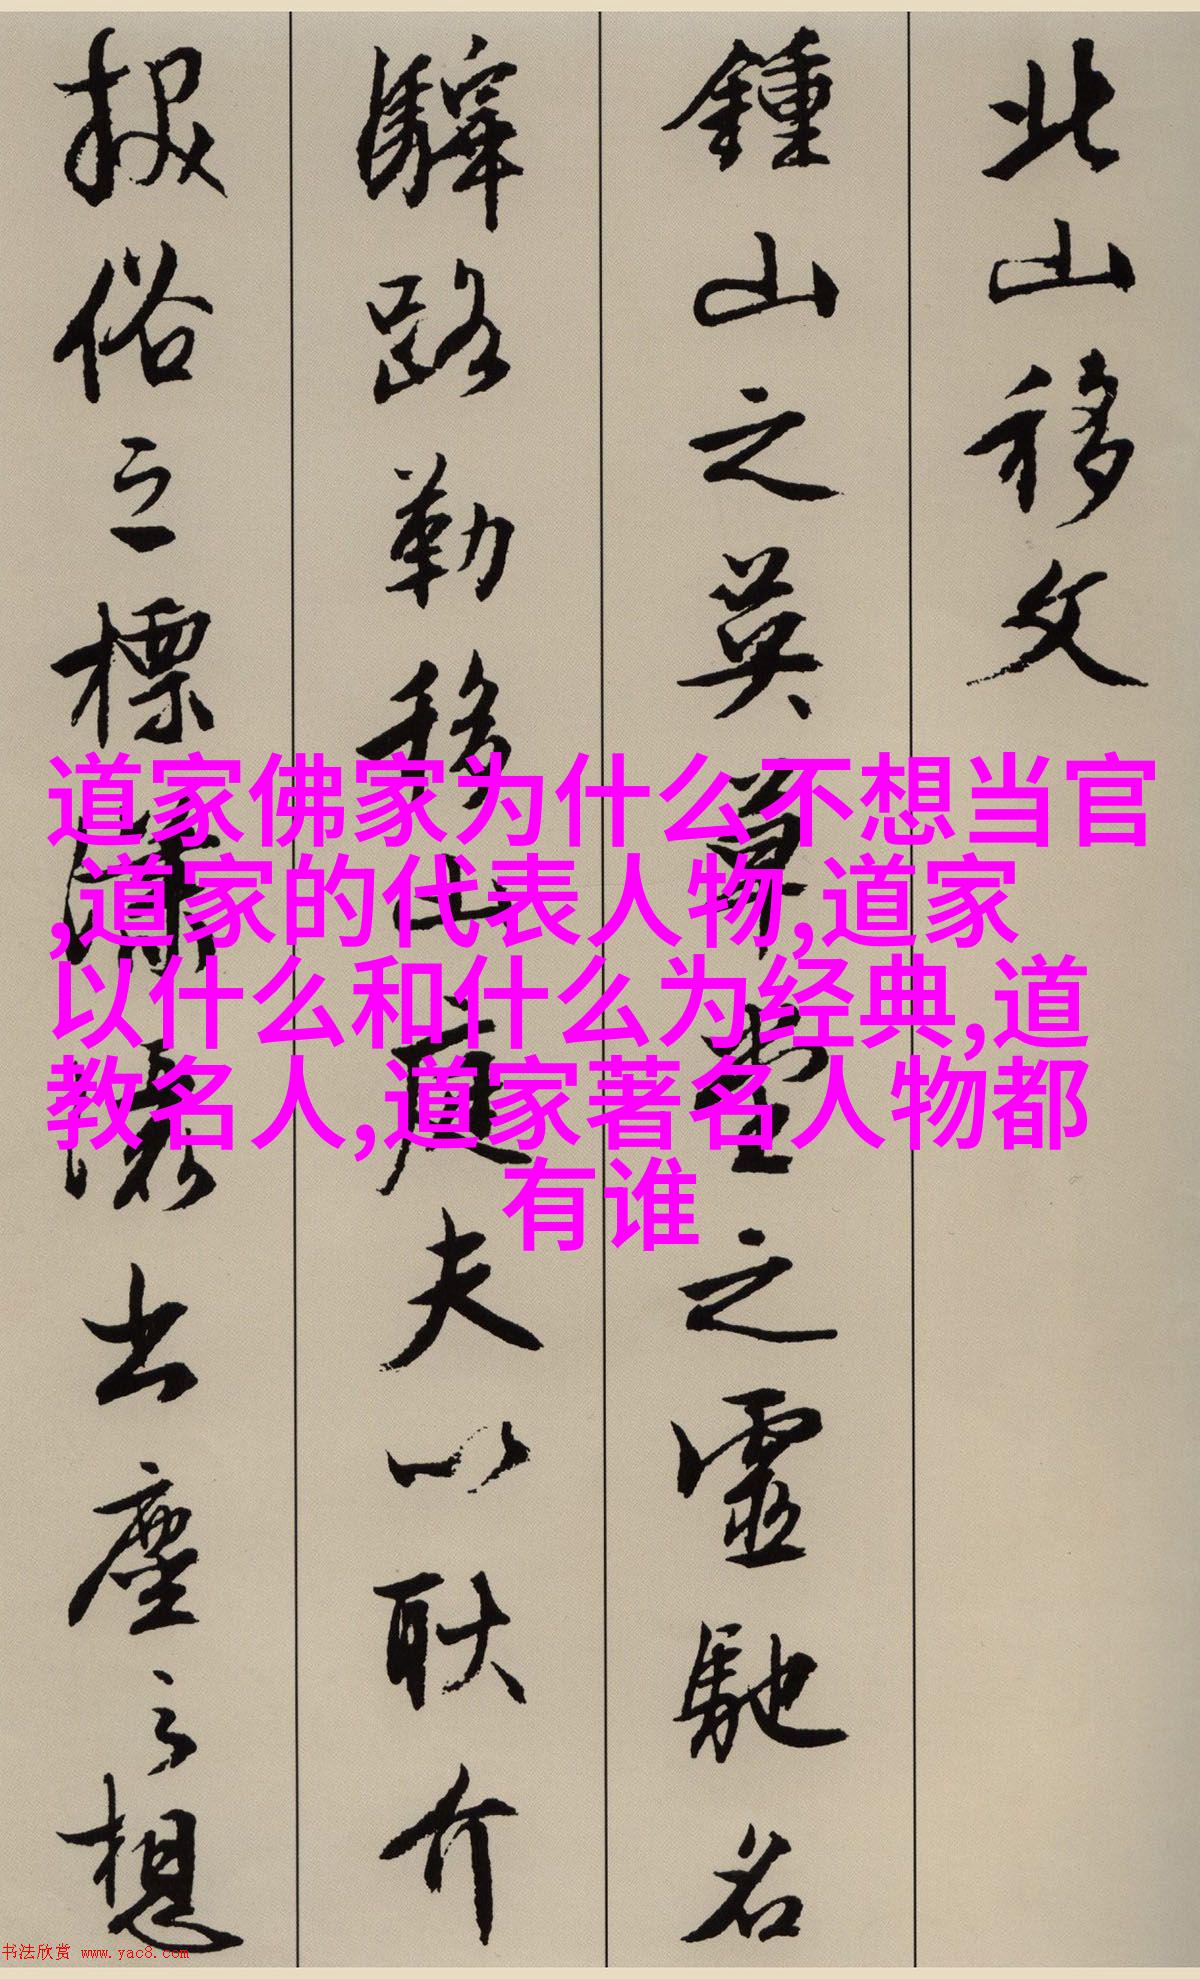 北山移文
鍾山之英草堂之靈馳名
驛路勒移山庭夫以耿介
拔俗之標瀟灑出塵之想
道家佛家为什么不想当官
,道家的代表人物,道家
以什么和什么为经典,道
教名人,道家著名人物都
有谁
书法欣赏 www.yac8.com